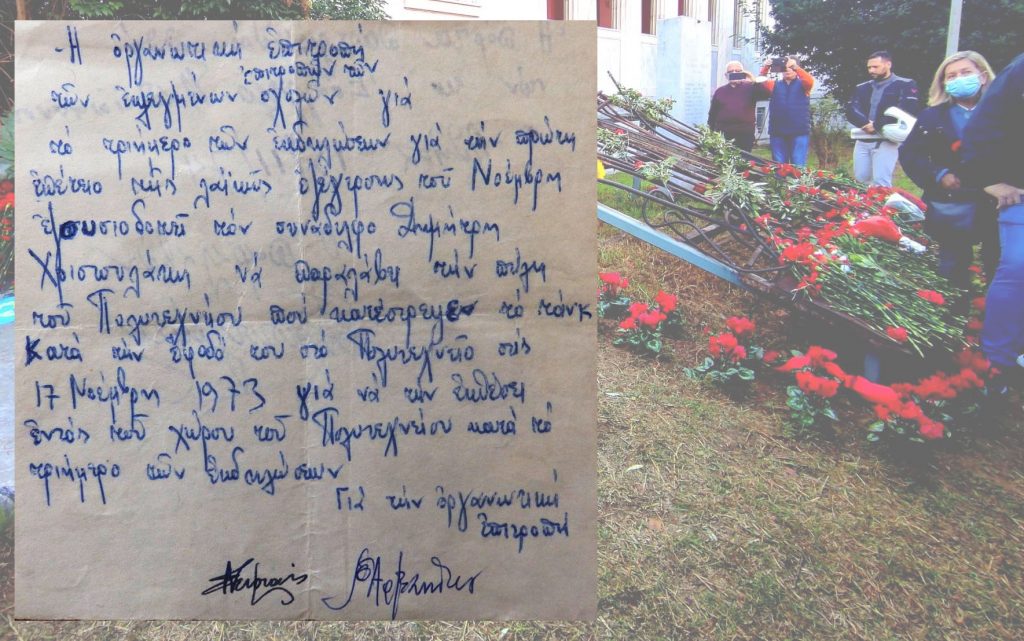 - Ἡ ὀργανωτική ἐπιτροπή
ἐπιτροπῶν τῶν
τῶν ἐκλεγμένων σχολῶν γιά
τό τριήμερο τῶν ἐκδηλώσεων γιά τήν πρώτη
ἐπέτειο τῆς λαϊκῆς ἐξέγερσης τοῦ Νοέμβρη
ἐξουσιοδοτεῖ τόν συνάδελφο Δημήτρη
νά παραλάβει τήν πύλη
τοῦ Πολυτεχνείου πού κατέστρεψεν τό τάνκ
κατά τήν ἔφοδό του στό Πολυτεχνεῖο στίς
17 Νοέμβρη 1973 γιά νά τήν ἐκθέσει
ἐντός τοῦ χώρου τοῦ Πολυτεχνείου κατά τό
τριήμερο τῶν ἐκδηλώσεων
Γιά τήν ὀργανωτική
ἐπιτροπή